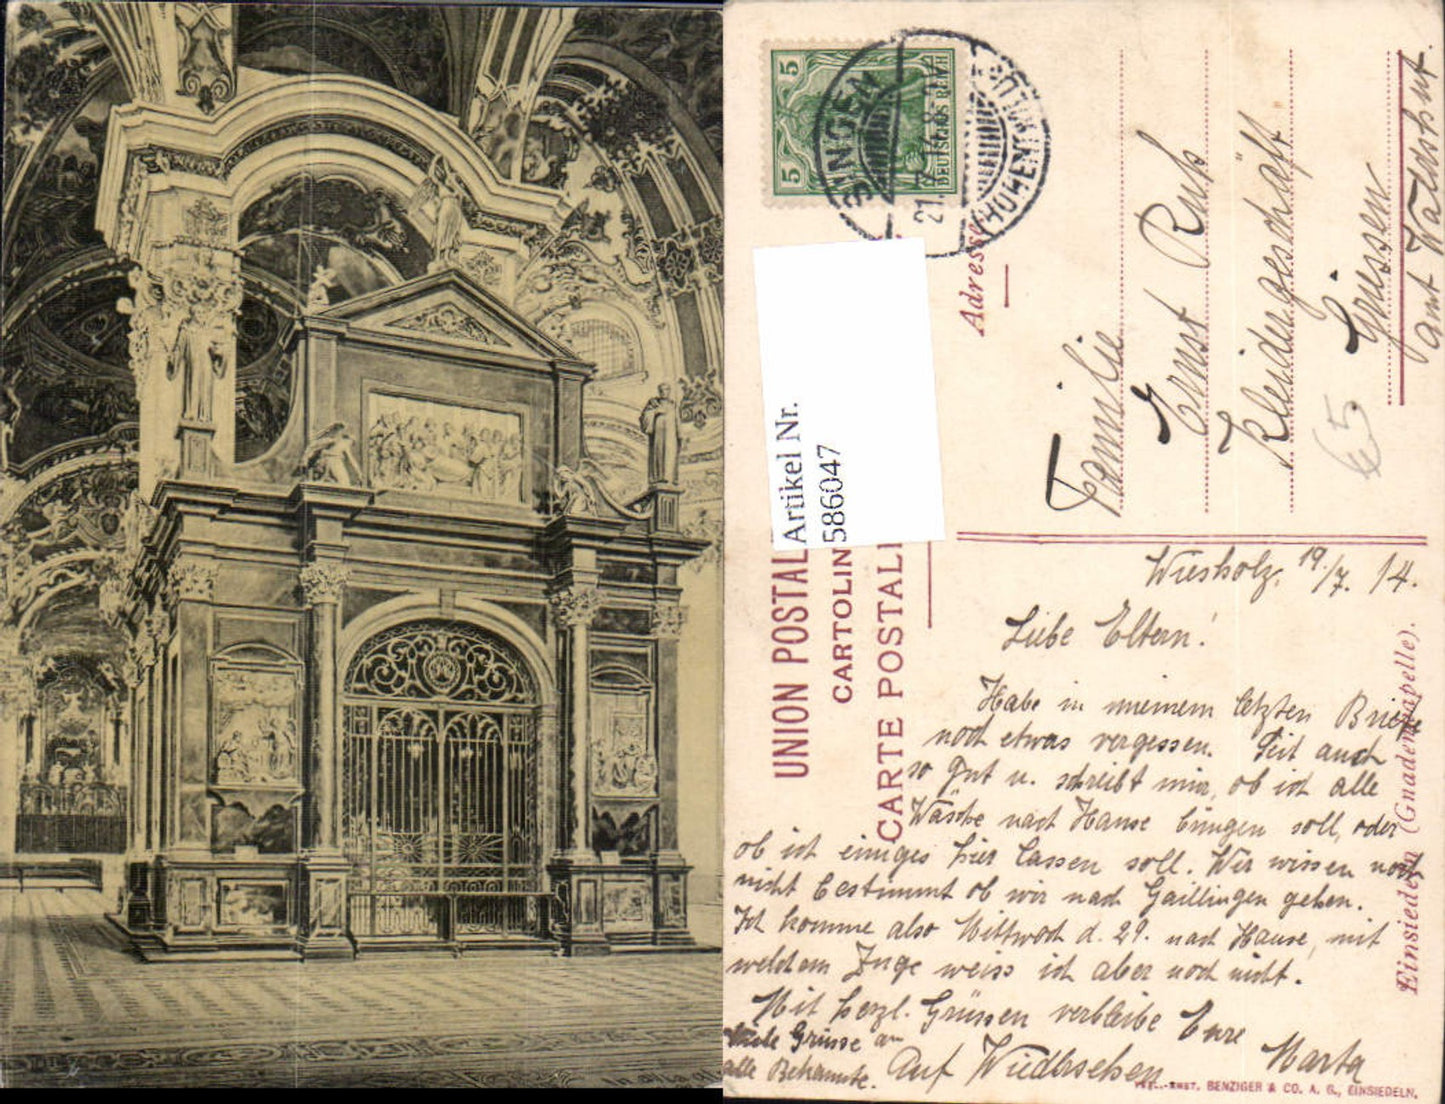 5
5
DEUTSCHES REICH
SINGEN
21.7.14.8-9V.
(HOHENTWIEL)
Artikel Nr.
586047
UNION POSTALE
CARTOLINA
CARTE POSTALE
Adresse
Familie
Ernst Ruch
Kleidergeschäft
Griessen
amt Waldshut.
65
Wiesholz. 19./7. 14.
Liebe Eltern!
Habe in meinem letzten Briefe
noch etwas vergessen. Seit auch
so gut u. schreibt mir, ob ich alle
Wäsche nach Hause bringen soll, oder
ob ich einiges hier lassen soll. Wir wissen noch
nicht bestimmt ob wir nach Gaillingen gehen.
Ich komme also Mittwoch d. 29. nach Hause, mit
welchem Zuge weiss ich aber noch nicht.
Mit herzl. Grüssen verbleibe Eure
Marta
Viele Grüsse an
alle Bekannte.
Auf Wiedersehen
Einsiedeln (Gnadenkapelle).
BENZIGER & CO. A. G., EINSIEDELN.